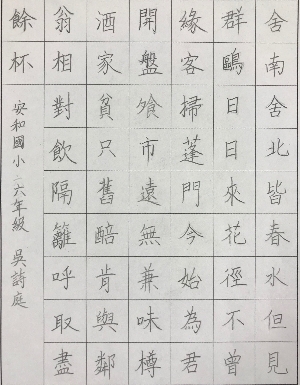 舍南舍北皆春水但見
群鷗日日來花徑不曾
緣客掃蓬門今始為君
開盤飧市遠無兼味樽
酒家貧只舊醅肯與鄰
翁相對飲隔籬呼取盡
餘杯
安和國小 六年級 吳詩庭